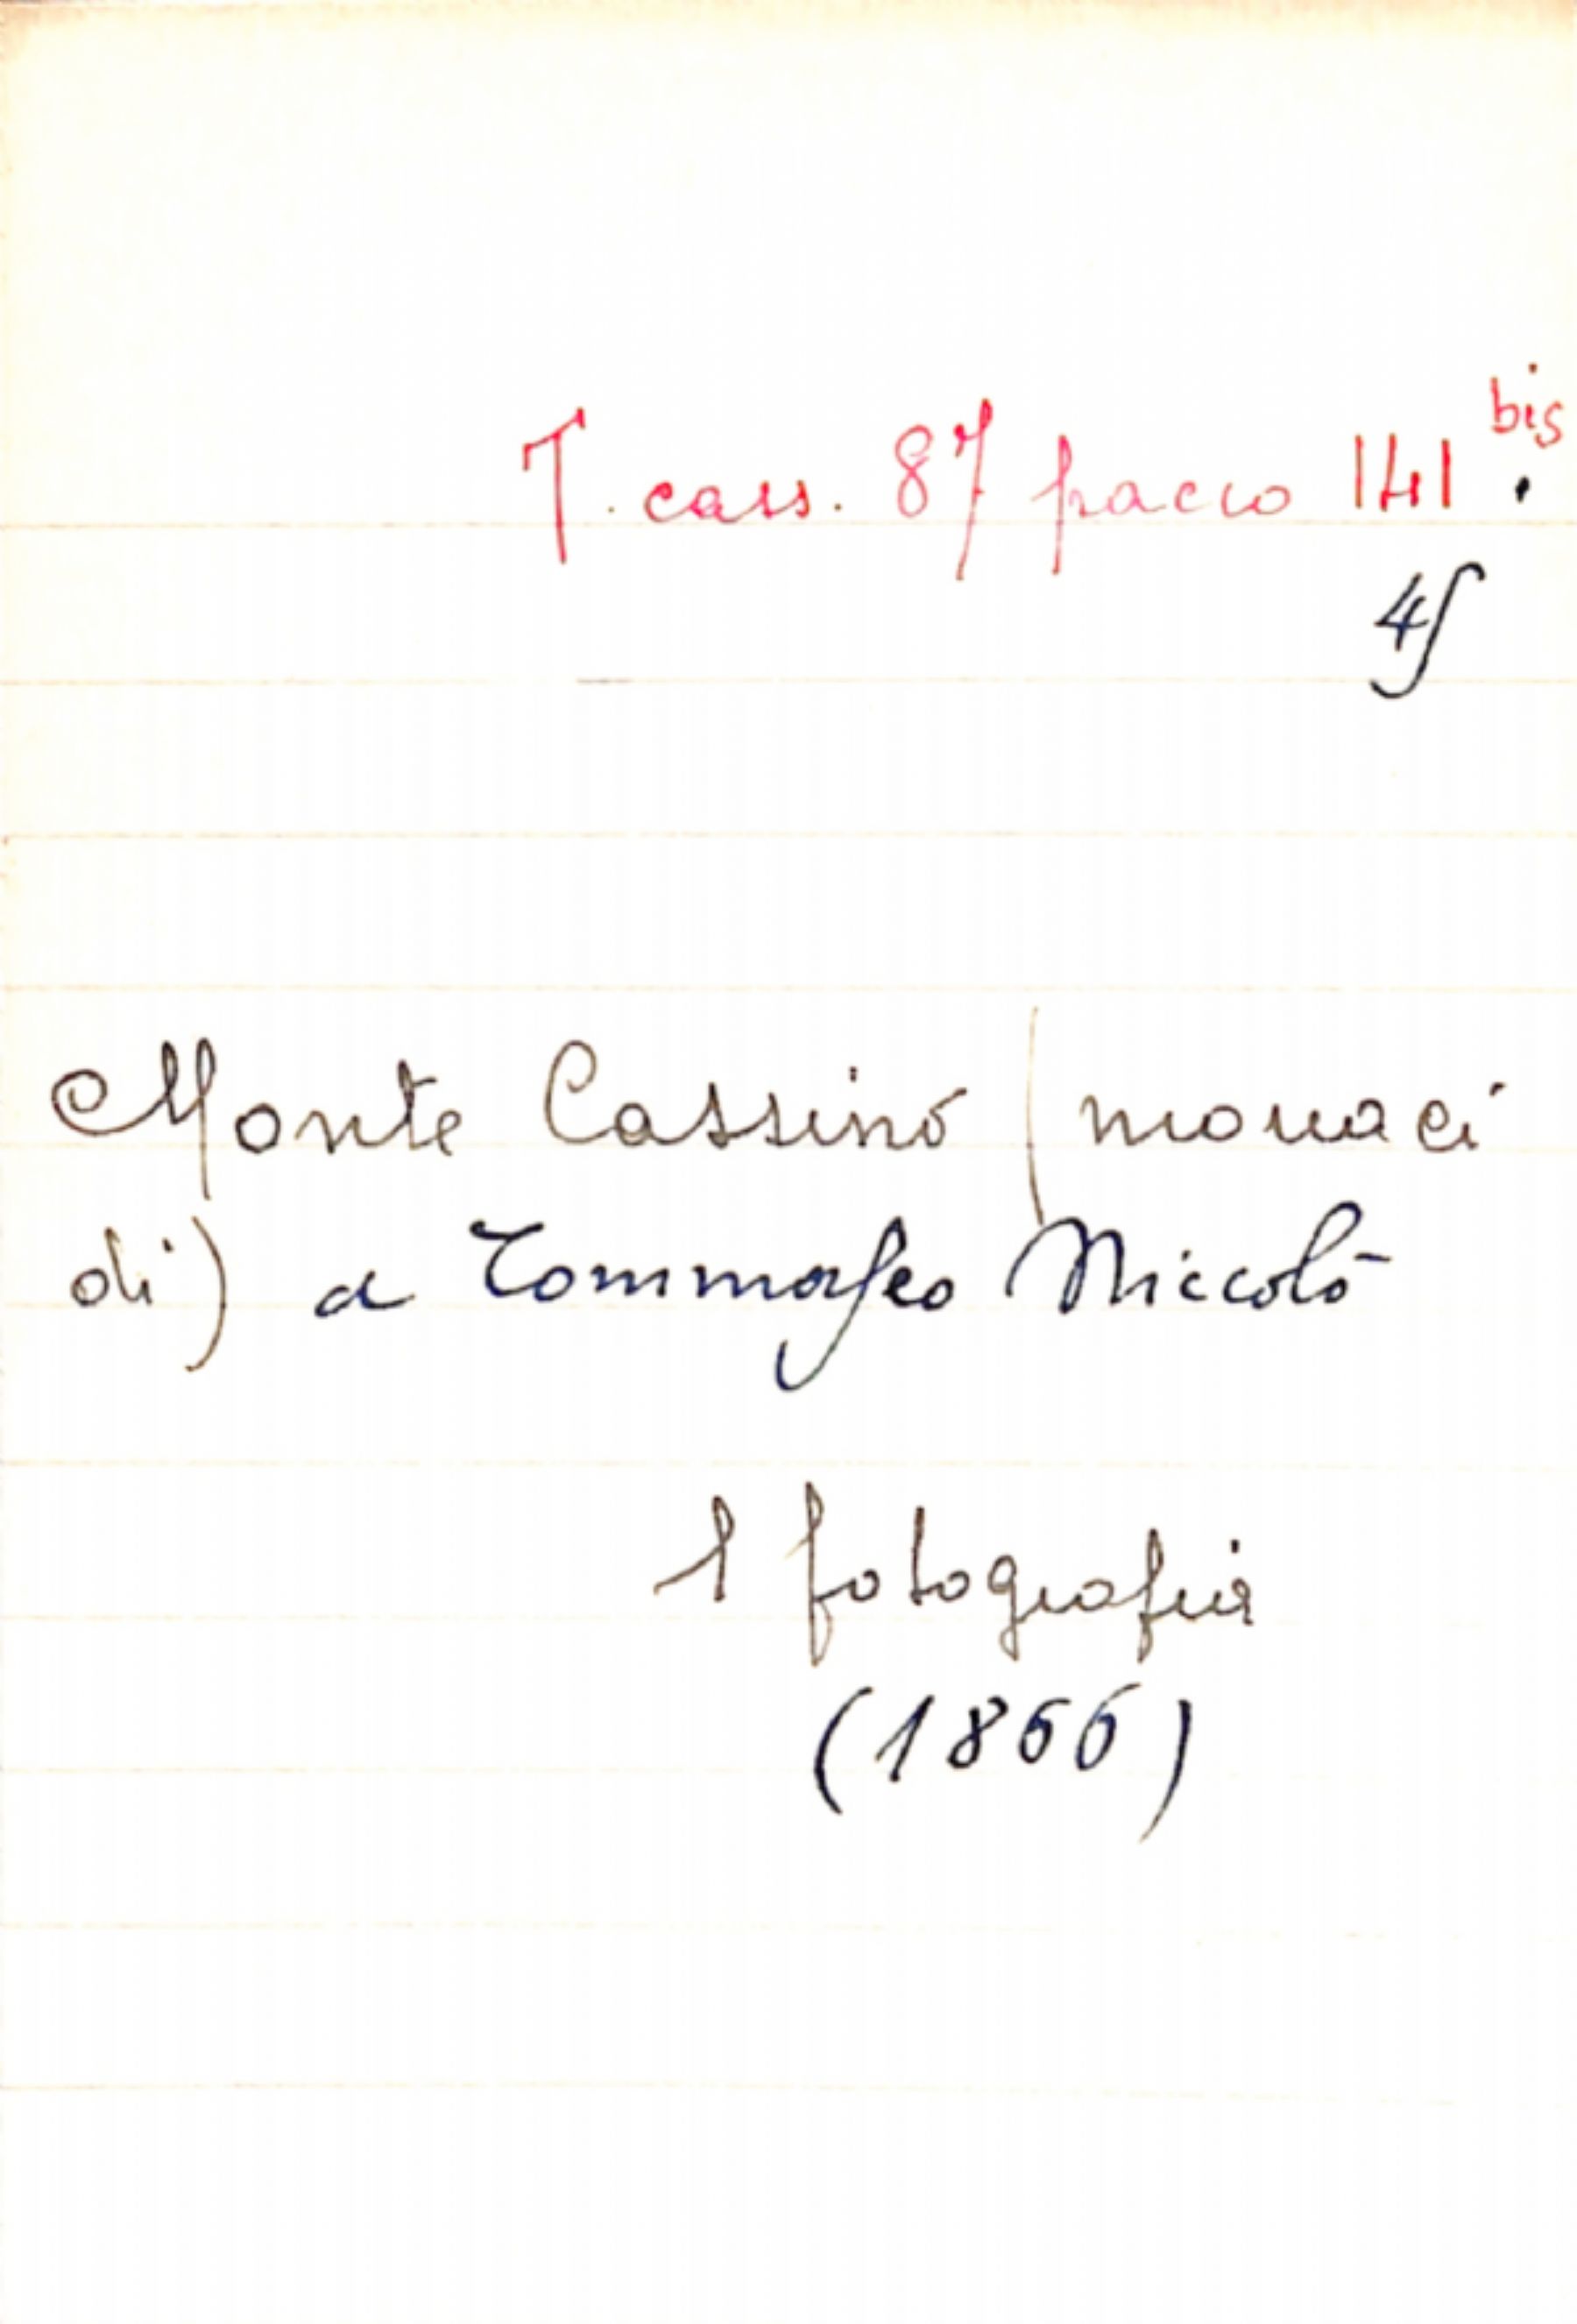 T. cass. 87 pacco 141 bis.
Monte Cassino (monaci
di) a Tommaseo Niccolò
1 fotografia
(1866)